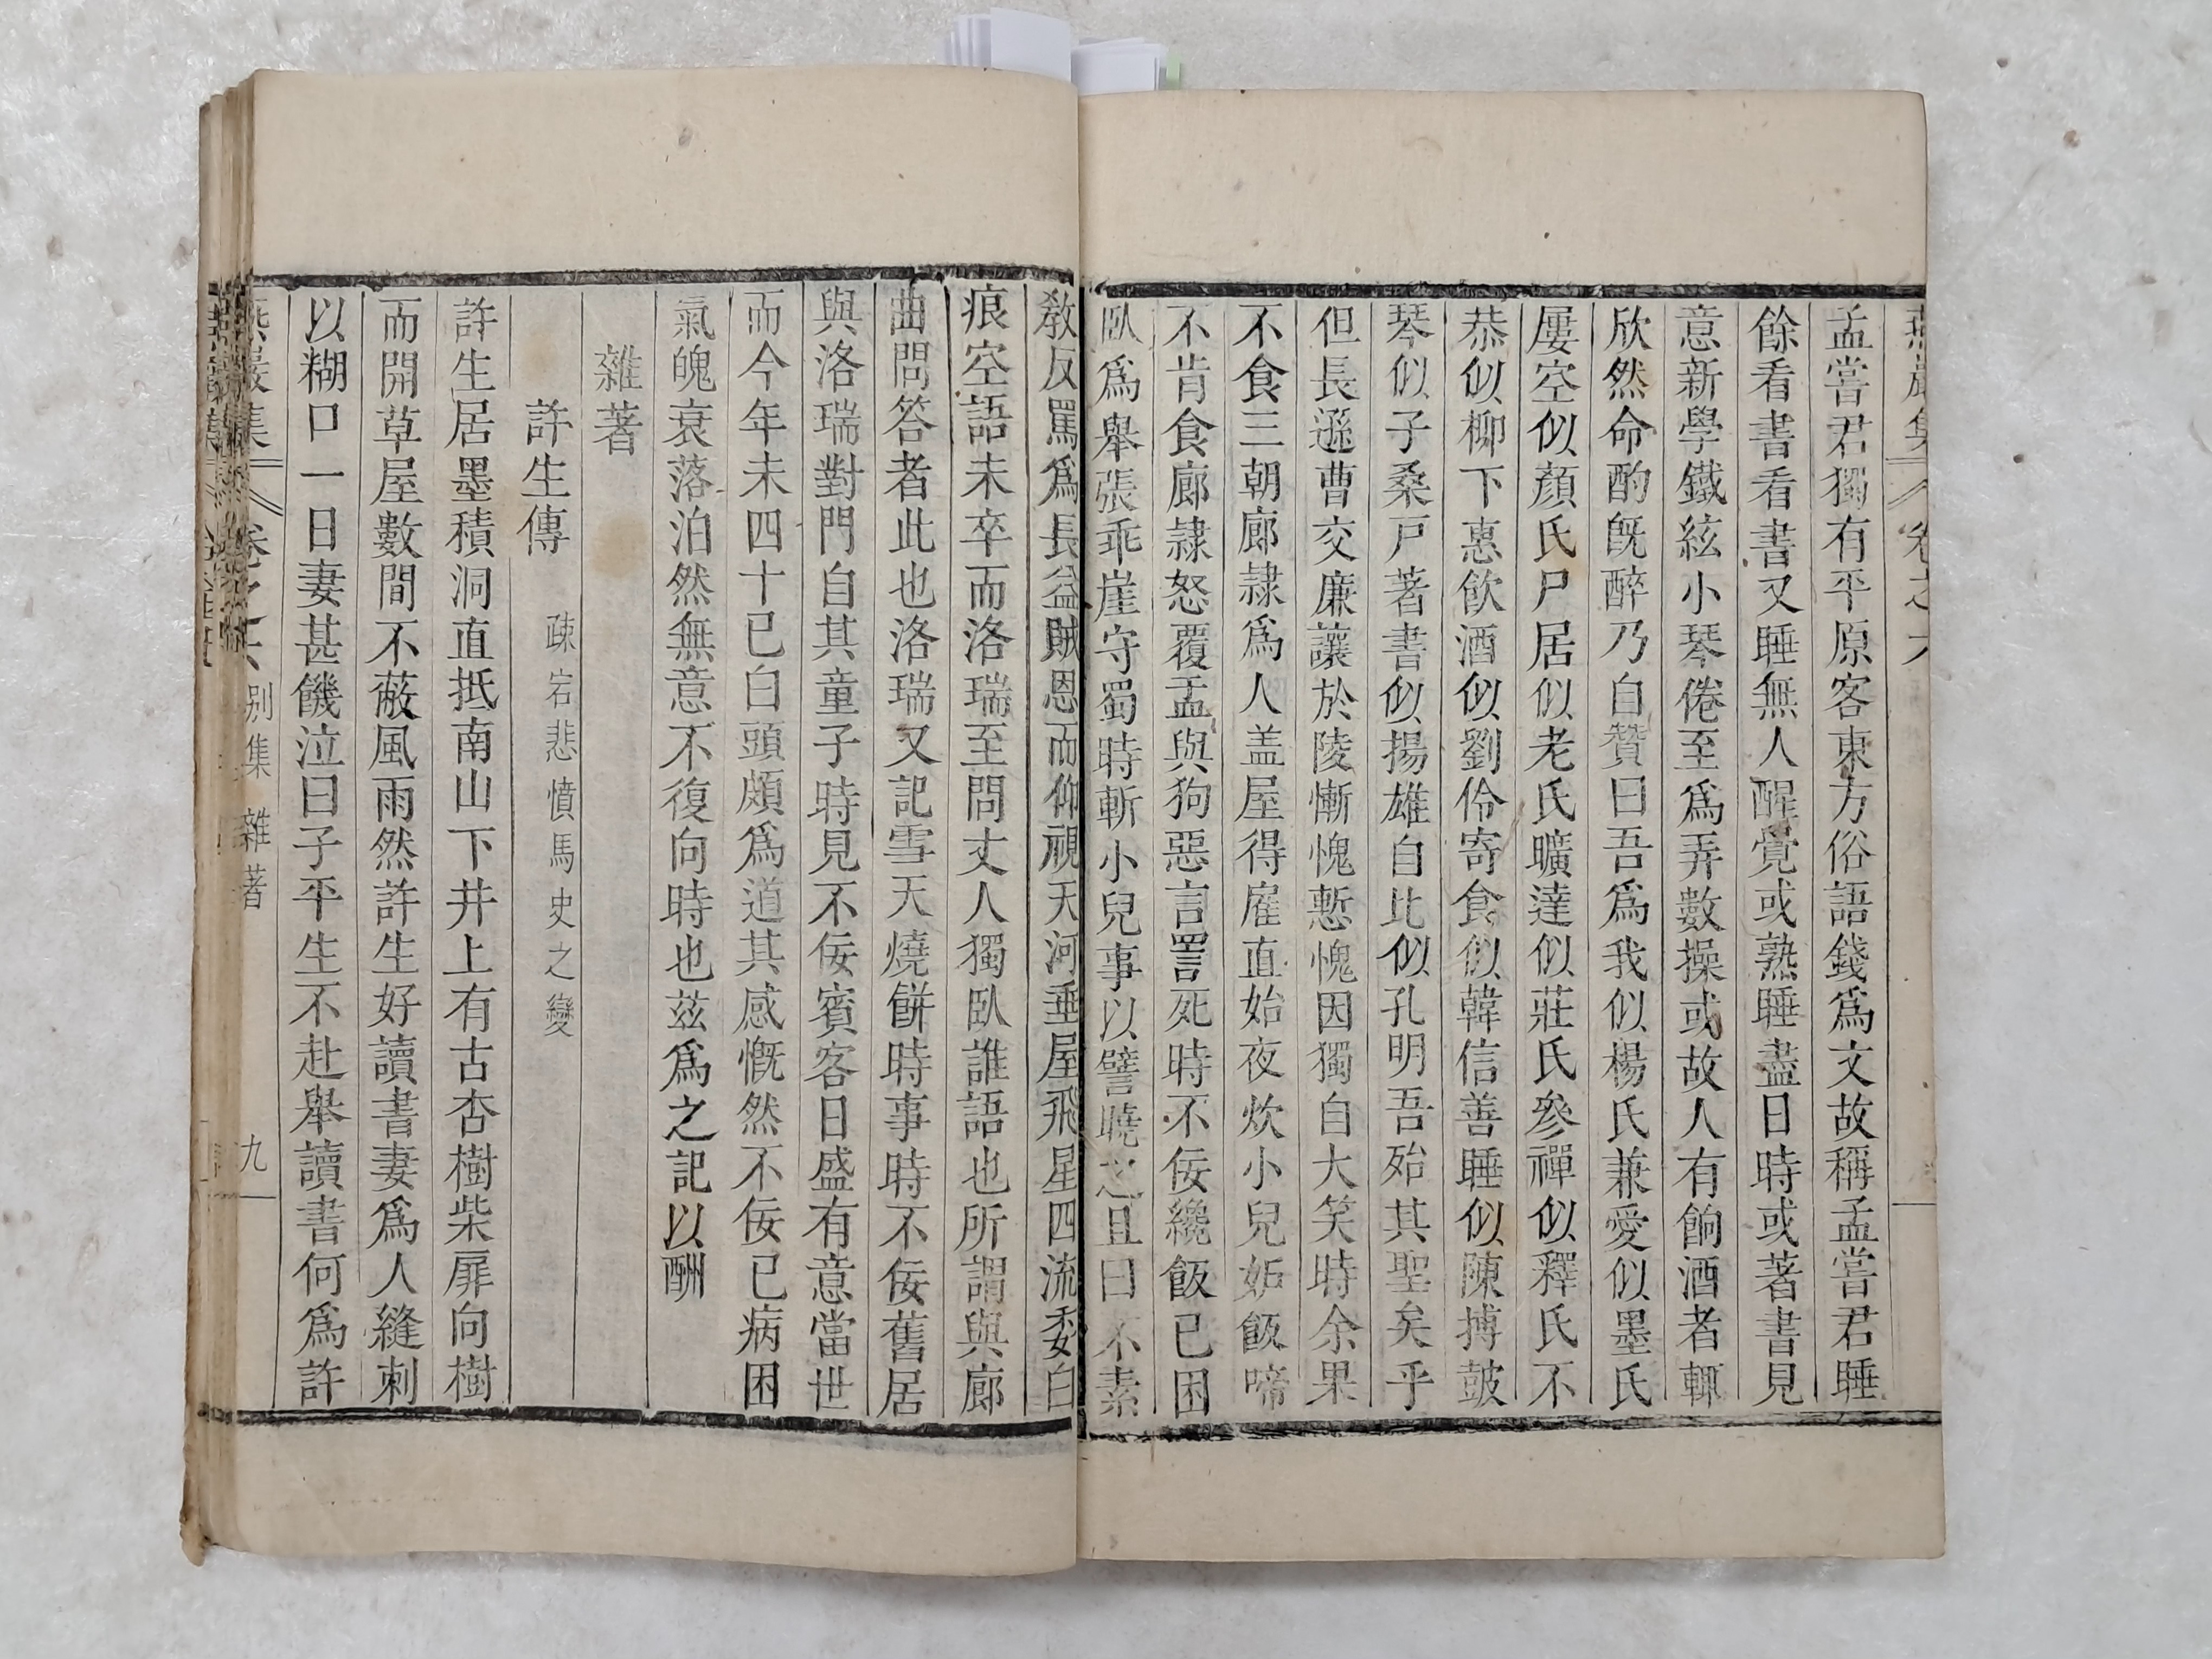 燕巖集 卷之六
孟嘗君獨有平原客東方俗語錢爲文故稱孟嘗君睡
餘看書看書又睡無人醒覺或熟睡盡日時或著書見
意新學鐵絃小琴倦至爲弄數操或故人有餉酒者輒
欣然命酌旣醉乃自贊曰吾爲我似楊氏兼愛似墨氏
屢空似顏氏尸居似老氏曠達似莊氏參禪似釋氏不
恭似柳下惠飮酒似劉伶寄食似韓信善睡似陳搏皷
琴似子桑戶著書似揚雄自比似孔明吾殆其聖矣乎
但長遜曹交廉讓於陵慚愧慙愧因獨自大笑時余果
不食三朝廊隷爲人盖屋得雇直始夜炊小兒妬飯啼
不肯食廊隷怒覆盂與狗惡言詈死時不佞纔飯已困
臥爲舉張乖崖守蜀時斬小兒事以譬曉之且曰不素
敎反罵爲長益賊恩而仰視天河垂屋飛星四流委白
痕空語未卒而洛瑞至問丈人獨臥誰語也所謂與廊
曲問答者此也洛瑞又記雪天燒餠時事時不佞舊居
與洛瑞對門自其童子時見不佞賓客日盛有意當世
而今年未四十已白頭頗爲道其感慨然不佞已病困
氣魄衰落泊然無意不復向時也玆爲之記以酬
雜著
許生傳 疎宕悲憤馬史之變
許生居墨積洞直抵南山下井上有古杏樹柴扉向樹
而開草屋數間不蔽風雨然許生好讀書妻爲人縫刺
以糊口一日妻甚饑泣曰子平生不赴舉讀書何爲許
燕巖集 卷之六 別集 雜著 九